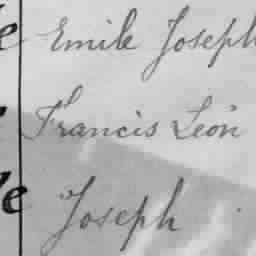 Emile Joseph
Francis Leon
Joseph